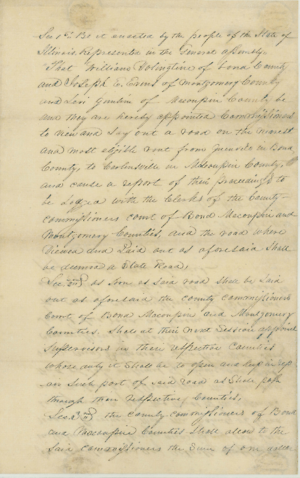 Sec 1st Be it enacted by the people of the State of
Illinois represented in the General Assembly.
That William
of Bond County
and Joseph
of Montgomery County
and
of Macoupin County be
and they are hereby appointed Commissioners
to view and lay out a road on the nearest
and most eligible rout from
in Bond
County, to Carlinville in Macoupin County
and cause a report of their proceedings to
be Lodged with the Clerks of the County
commissioners court of Bond Macoupin and
Montgomery Counties, and the road when
Viewed and Laid out as aforesaid Shall
be deemed a State Road;
Sec 2d as soon as said road shall be laid
out as aforesaid the county commissioners
Court of Bond Macoupin and Montgomery
Counties. Shall at their next Session appoint
Supervisors in their respective Counties
whose duty it Shall be to open and keep in repair
such part of said road as shall pass
through their respective Counties;
Sec 3d the County commissioners of Bond
and Macoupin Counties shall allow to the
said commissioners the Sum of one dollar